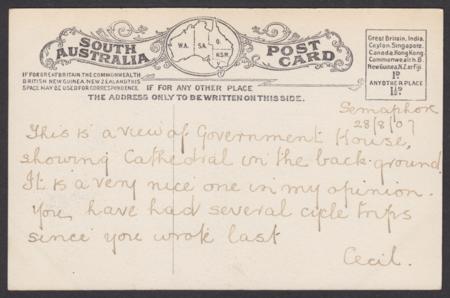 SOUTH AUSTRALIA
W.A. S.A. Q. N.S.W.
POST CARD
Great Britain, India,
Ceylon, Singapore,
Canada, Hong Kong,
Commonwealth. B.
New Guinea, N.Z. or Fiji
1D
ANY OTHER PLACE
1½D
IF FOR GREAT BRITAIN THE COMMONWEALTH,
BRITISH NEW GUINEA, NEW ZEALAND THIS
SPACE MAY BE USED FOR CORRESPONDENCE.
IF FOR ANY OTHER PLACE
THE ADDRESS ONLY TO BE WRITTEN ON THIS SIDE.
Semaphore
28/8/07
This is a view of Government House,
showing Cathedral in the back-ground.
It is a very nice one in my opinion.
You, have had several cycle trips
since you wrote last
Cecil.